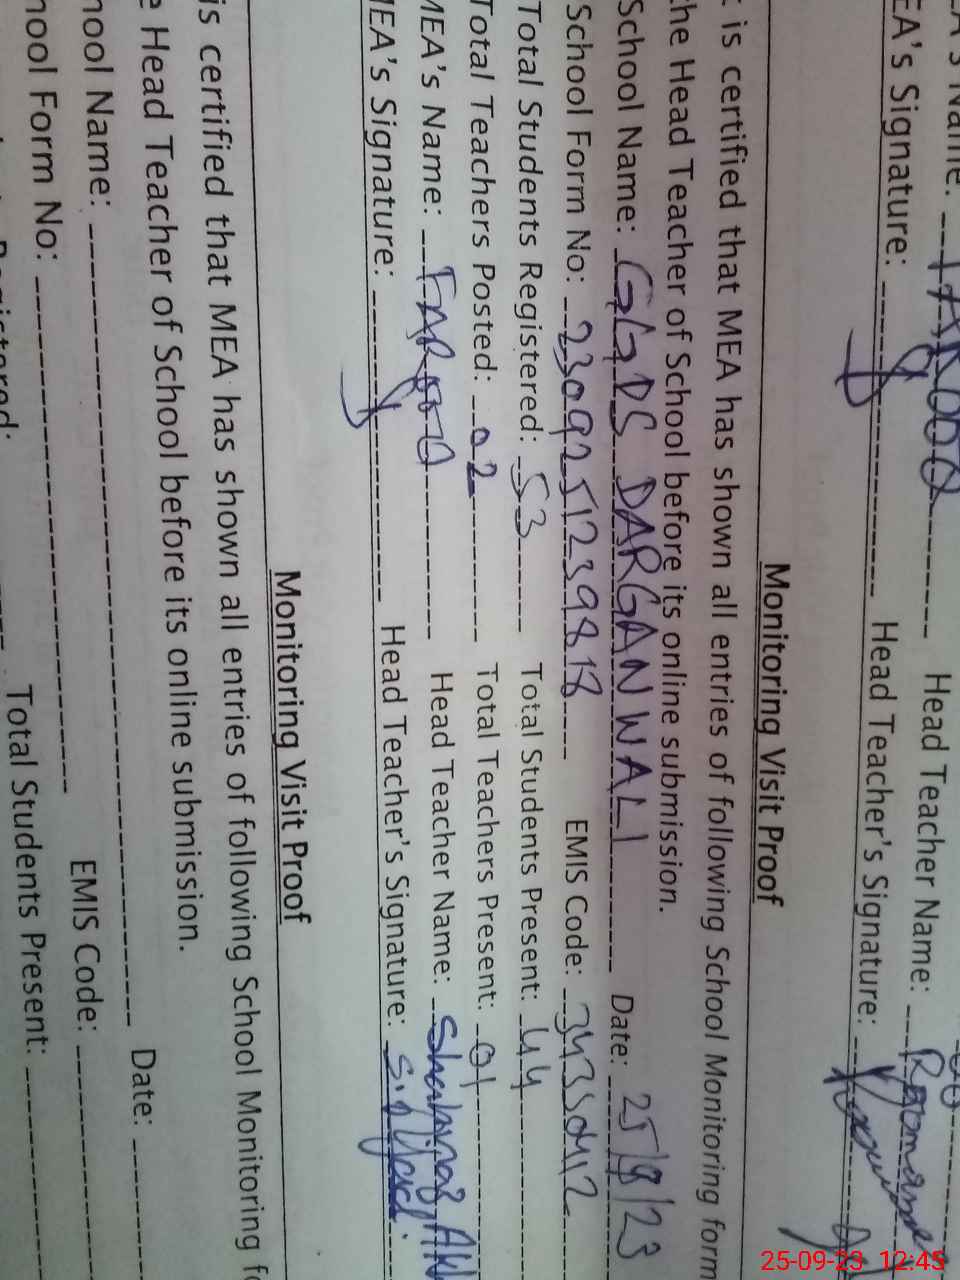 EA's Name: FAROOQ Head Teacher Name:
EA's Signature: Head Teacher's Signature:
Monitoring Visit Proof
t is certified that MEA has shown all entries of following School Monitoring form
he Head Teacher of School before its online submission.
School Name: GGPS DARGAN WALI Date: 25/9/23
School Form No: 230925123981 EMIS Code: 34350412
Total Students Registered: 53 Total Students Present: 44
Total Teachers Posted: 02 Total Teachers Present: 01
MEA's Name: FAROOQ Head Teacher Name: Shahnaz
MEA's Signature: Head Teacher's Signature:
Monitoring Visit Proof
is certified that MEA has shown all entries of following School Monitoring fo
e Head Teacher of School before its online submission.
hool Name: Date:
hool Form No: EMIS Code:
Registered: Total Students Present:
25-09-23 12:45